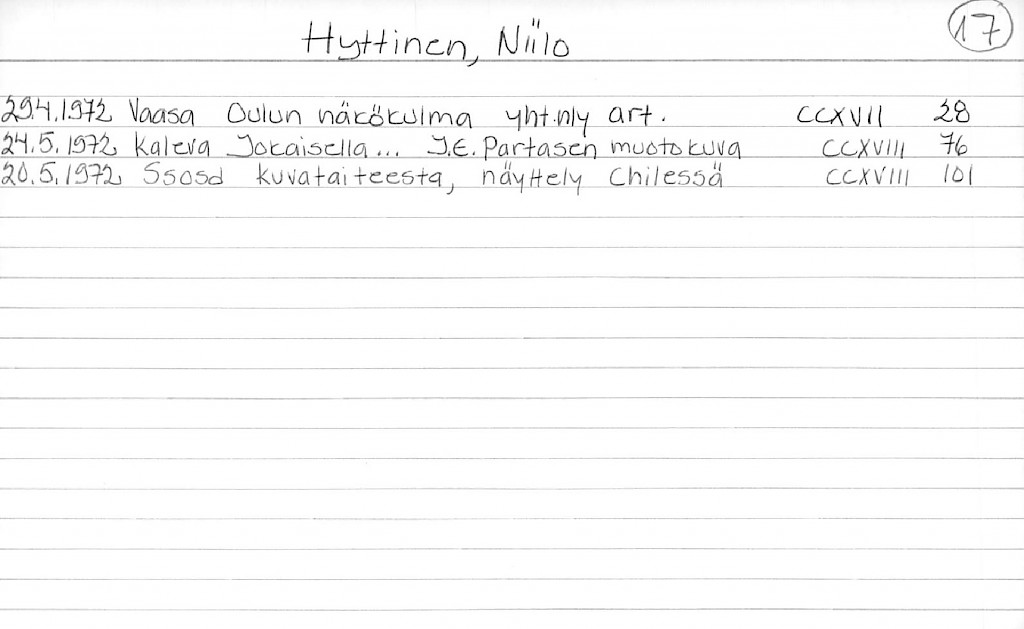 Hyttinen, Niilo 17
29.4.1972 Vaasa Oulun näkökulma yht.nly art. CCXVII 28
24.5.1972 Kaleva Jokaisella... J.E. Partasen muotokuva CCXVIII 76
20.5.1972 Ssosd kuvataiteesta, näyttely Chilessä CCXVIII 101